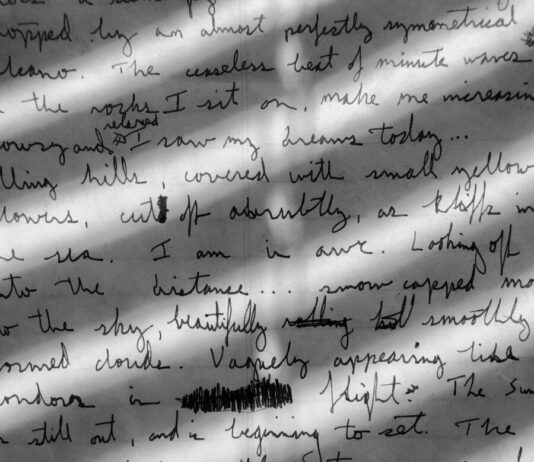 topped by an almost perfectly symmetrical
lcano. The ceaseless beat of minute waves
the rocks I sit on, make me increasin
relaxed
owsy and I saw my dreams today...
lling hills, covered with small yellow
lowers, cut off abrubtly, as cliffs in
he sea. I am in awe. Looking off
nto the distance... snow capped mo
the sky, beautifully rolling smoothly
ormed clouds. Vaguely appearing like
ondors in flight. The Sun
is still out, and is beginning to set. The